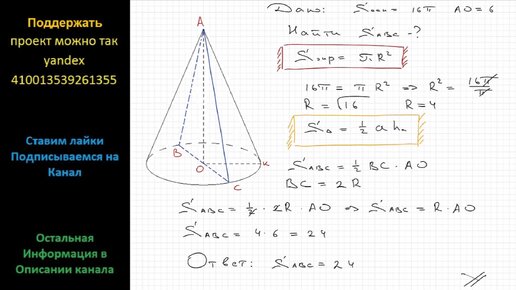 Поддержать
проект можно так
yandex
410013539261355
Ставим лайки
Подписываемся на
Канал
Остальная
Информация в
Описании канала
A
B
O
K
C
Дано: Sосн = 16π AO = 6
Найти SABC - ?
Sокр = πR²
16π = πR² => R² = 16π/π
R = √16 R = 4
S△ = ½ a hₐ
SABC = ½ BC · AO
BC = 2R
SABC = ½ · 2R · AO => SABC = R · AO
SABC = 4 · 6 = 24
Ответ: SABC = 24